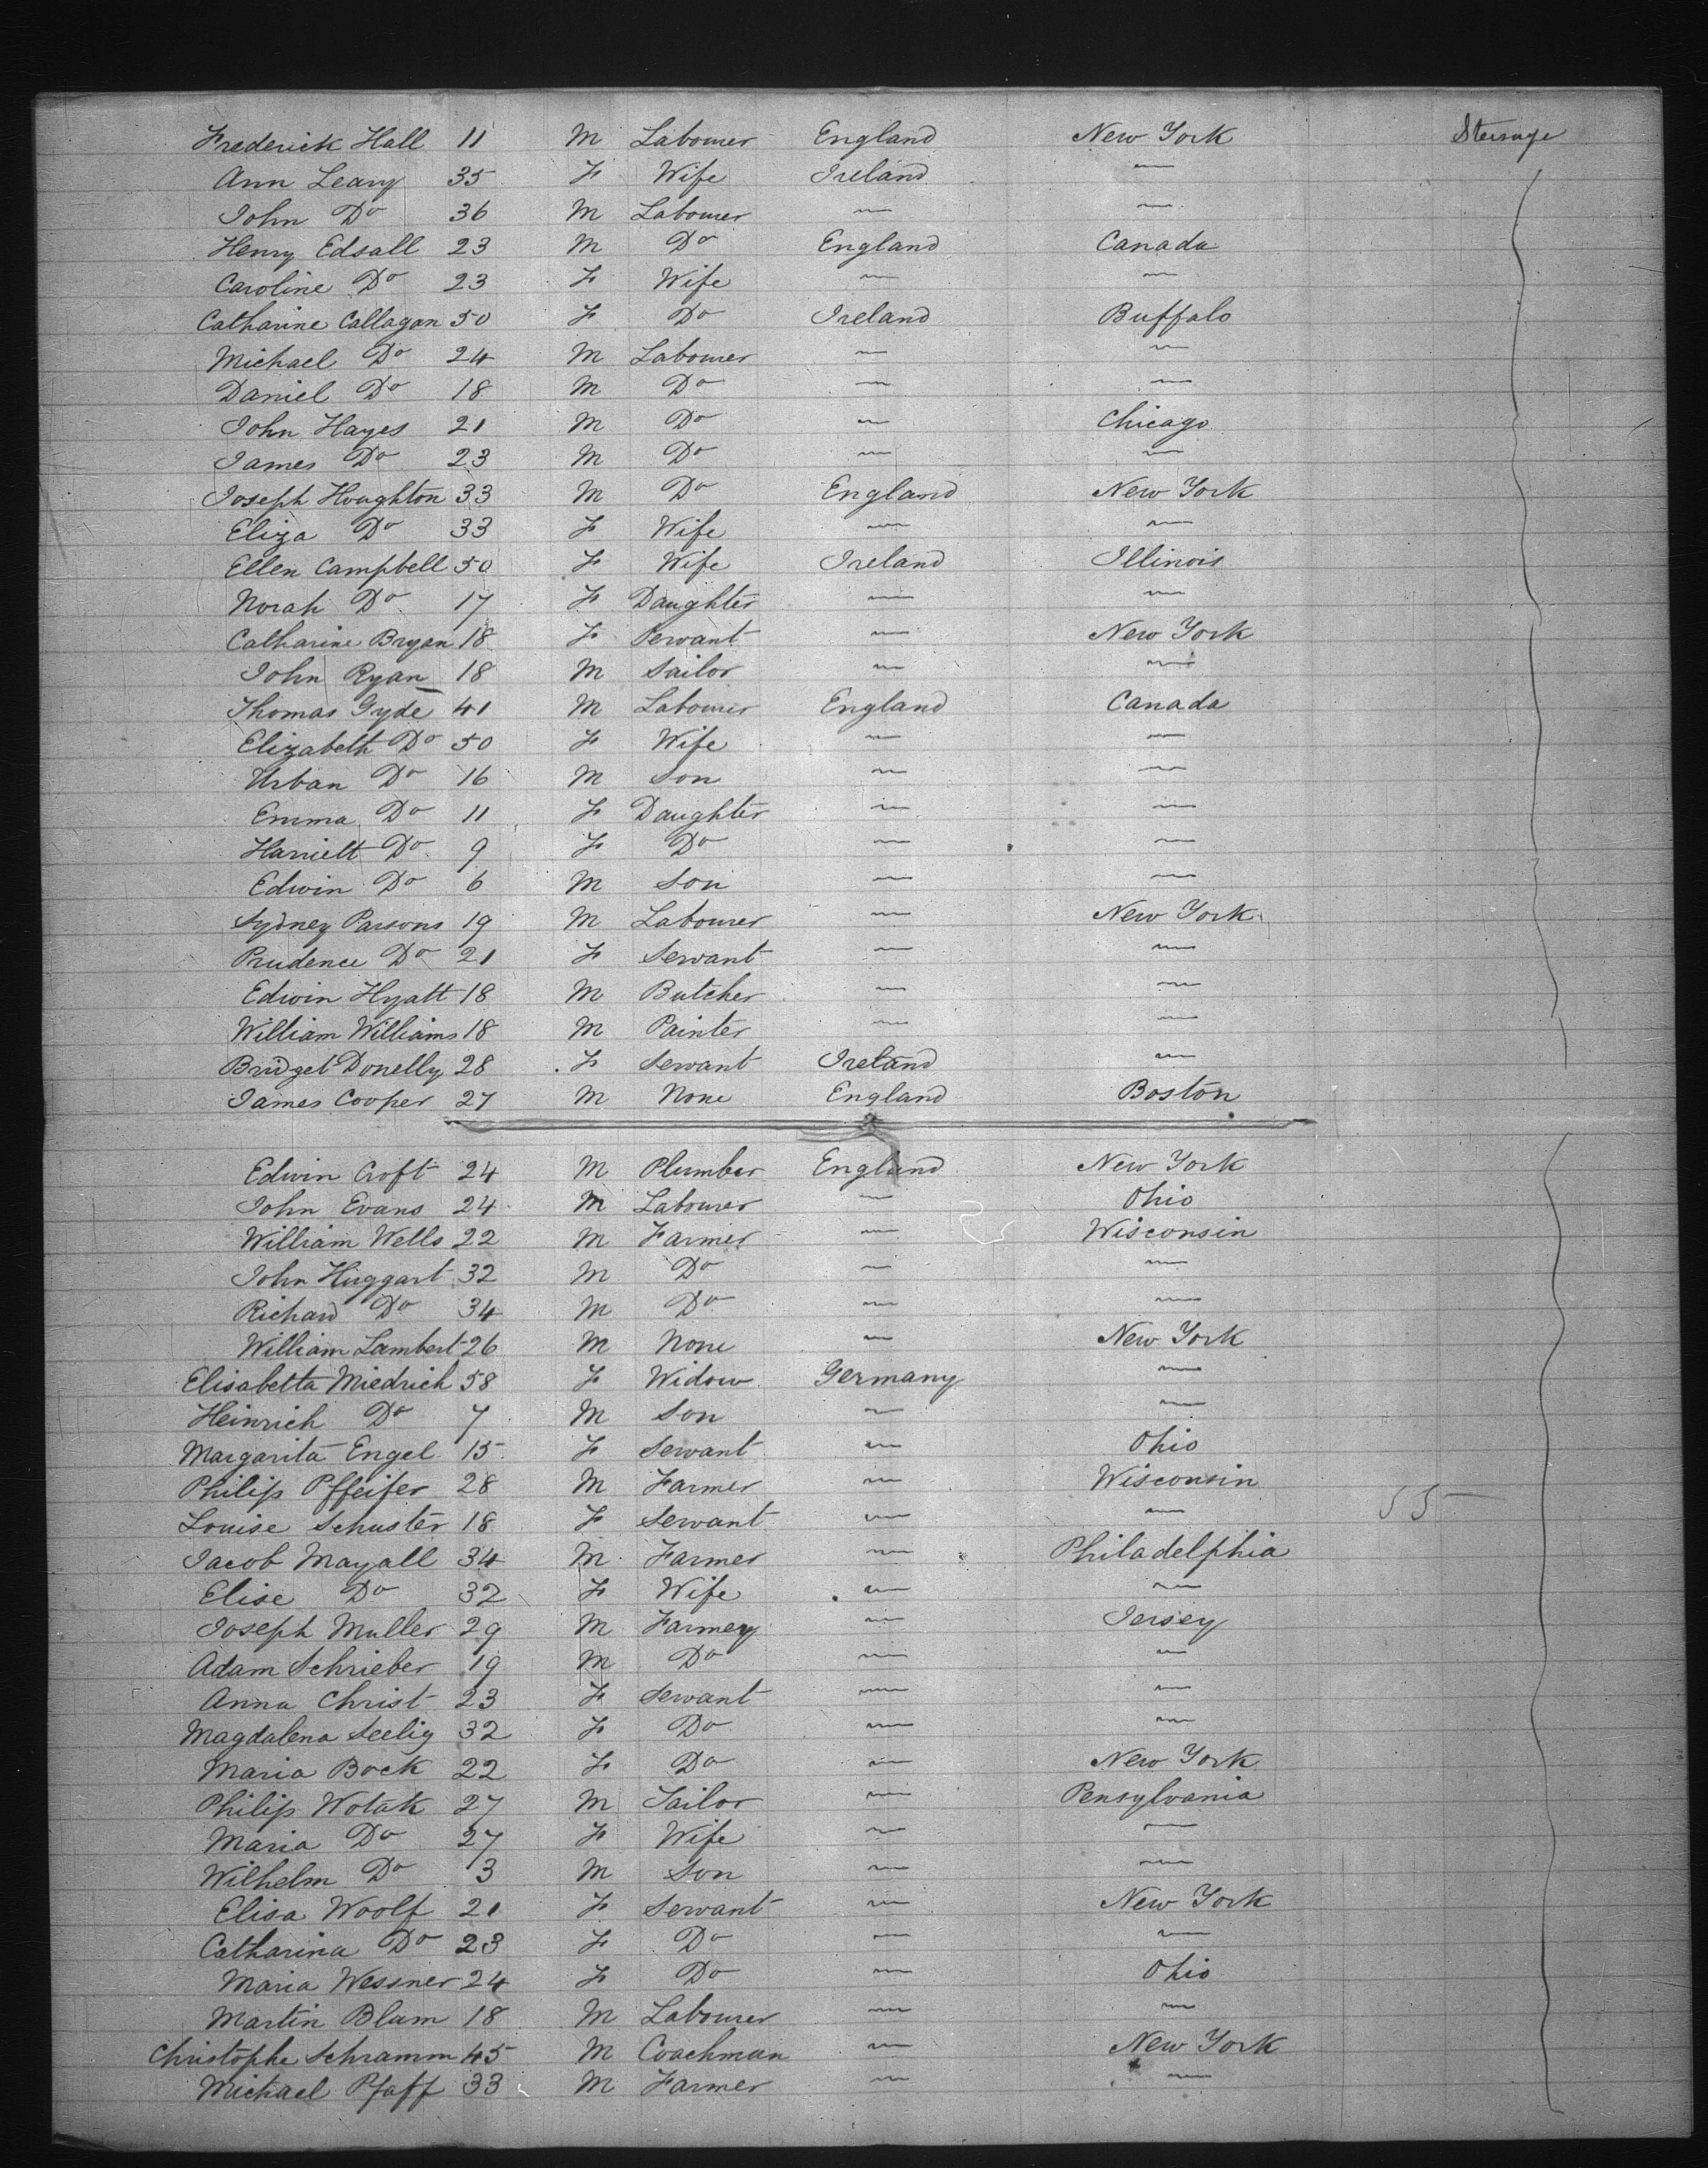 Frederick Hall 11 M Labourer England New York Steerage
Ann Leary 35 F Wife Ireland —
John Do 36 M Labourer — —
Henry Edsall 23 M Do England Canada
Caroline Do 23 F Wife — —
Catharine Callagan 50 F Do Ireland Buffalo
Michael Do 24 M Labourer — —
Daniel Do 18 M Do — —
John Hayes 21 M Do — Chicago
James Do 23 M Do — —
Joseph Houghton 33 M Do England New York
Eliza Do 33 F Wife — —
Ellen Campbell 50 F Wife Ireland Illinois
Norah Do 17 F Daughter — —
Catharine Bryan 18 F Servant — New York
John Ryan 18 M Sailor — —
Thomas Gyde 41 M Labourer England Canada
Elizabeth Do 50 F Wife — —
Urban Do 16 M Son — —
Emma Do 11 F Daughter — —
Harriett Do 9 F Do — —
Edwin Do 6 M Son — —
Sydney Parsons 19 M Labourer — New York
Prudence Do 21 F Servant — —
Edwin Hyatt 18 M Butcher — —
William Williams 18 M Painter — —
Bridget Donelly 28 F Servant Ireland —
James Cooper 27 M None England Boston
Edwin Croft 24 M Plumber England New York
John Evans 24 M Labourer — Ohio
William Wells 22 M Farmer — Wisconsin
John Huggart 32 M Do — —
Richard Do 34 M Do — —
William Lambert 26 M None — New York
Elisabetta Miedrich 58 F Widow Germany —
Heinrich Do 7 M Son — —
Margarita Engel 15 F Servant — Ohio
Philip Pffeifer 28 M Farmer — Wisconsin
Louise Schuster 18 F Servant — — 55
Jacob Mayall 34 M Farmer — Philadelphia
Elise Do 32 F Wife — —
Joseph Muller 29 M Farmer — Jersey
Adam Schrieber 19 M Do — —
Anna Christ 23 F Servant — —
Magdalena Seelig 32 F Do — —
Maria Bock 22 F Do — New York
Philip Wotak 27 M Tailor — Pensylvania
Maria Do 27 F Wife — —
Wilhelm Do 3 M Son — —
Elisa Woolf 21 F Servant — New York
Catharina Do 23 F Do — —
Maria Wessner 24 F Do — Ohio
Martin Blum 18 M Labourer — —
Christophe Schramm 45 M Coachman — New York
Michael Pfaff 33 M Farmer — —